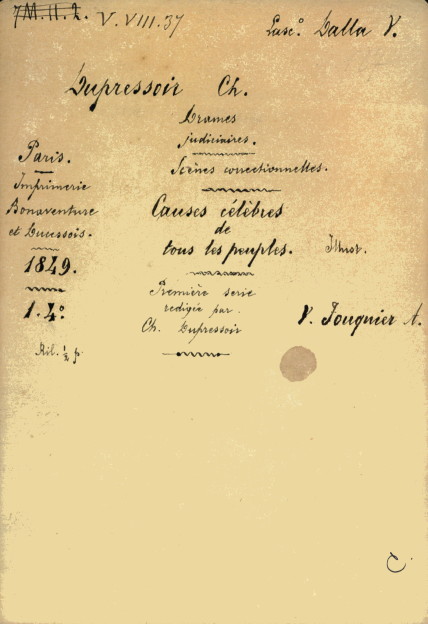 7M.11.2. V. VIII. 37
Lasc.º Dalla V.
Dupressoir Ch.
Drames
judiciaires.
Scènes correctionnelles.
Causes célèbres
de
tous les peuples. Illustr.
Première serie
redigée par.
Ch. Dupressoir
Paris.
Imprimerie
Bonaventure
et Ducessois.
1849.
1. 4º
Ril. ½ p.
V. Fouquier A.
C.